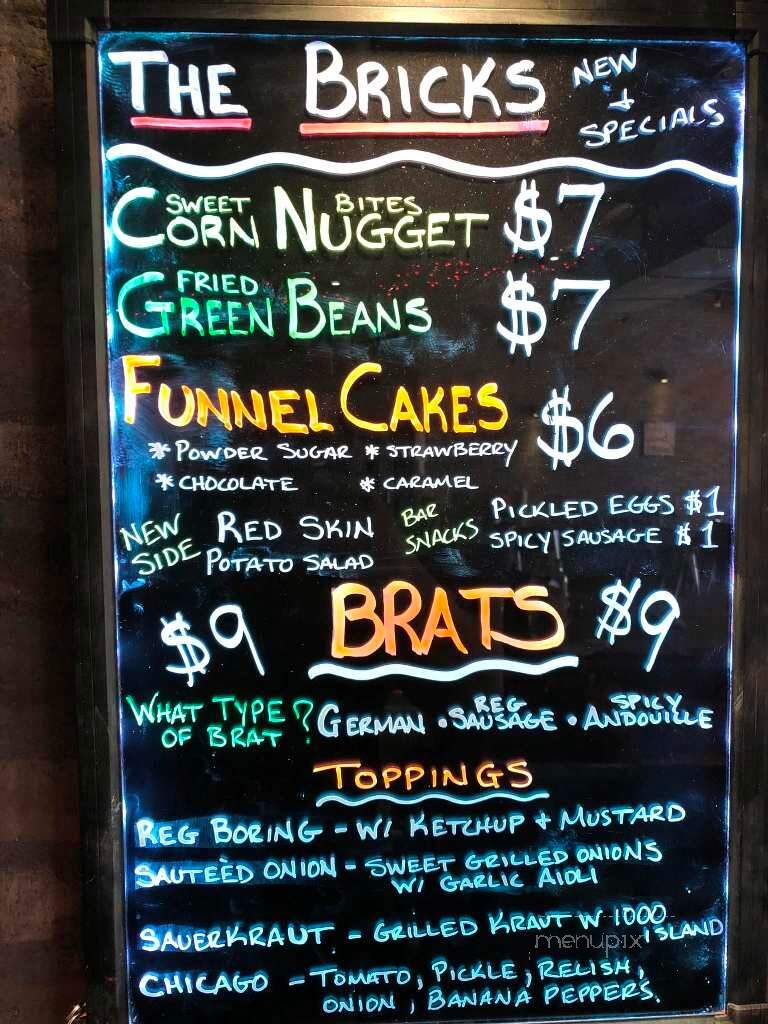 THE BRICKS NEW
+
SPECIALS
SWEET BITES
CORN NUGGET $7
FRIED
GREEN BEANS $7
FUNNEL CAKES $6
* POWDER SUGAR * STRAWBERRY
* CHOCOLATE * CARAMEL
NEW SIDE RED SKIN POTATO SALAD
BAR SNACKS PICKLED EGGS $1
SPICY SAUSAGE $1
$9 BRATS $9
WHAT TYPE OF BRAT ? GERMAN • REG SAUSAGE • SPICY ANDOUILLE
TOPPINGS
REG BORING - W/ KETCHUP + MUSTARD
SAUTEÈD ONION - SWEET GRILLED ONIONS
W/ GARLIC AIOLI
SAUERKRAUT - GRILLED KRAUT W 1000
ISLAND
CHICAGO - TOMATO, PICKLE, RELISH,
ONION, BANANA PEPPERS.
menupix